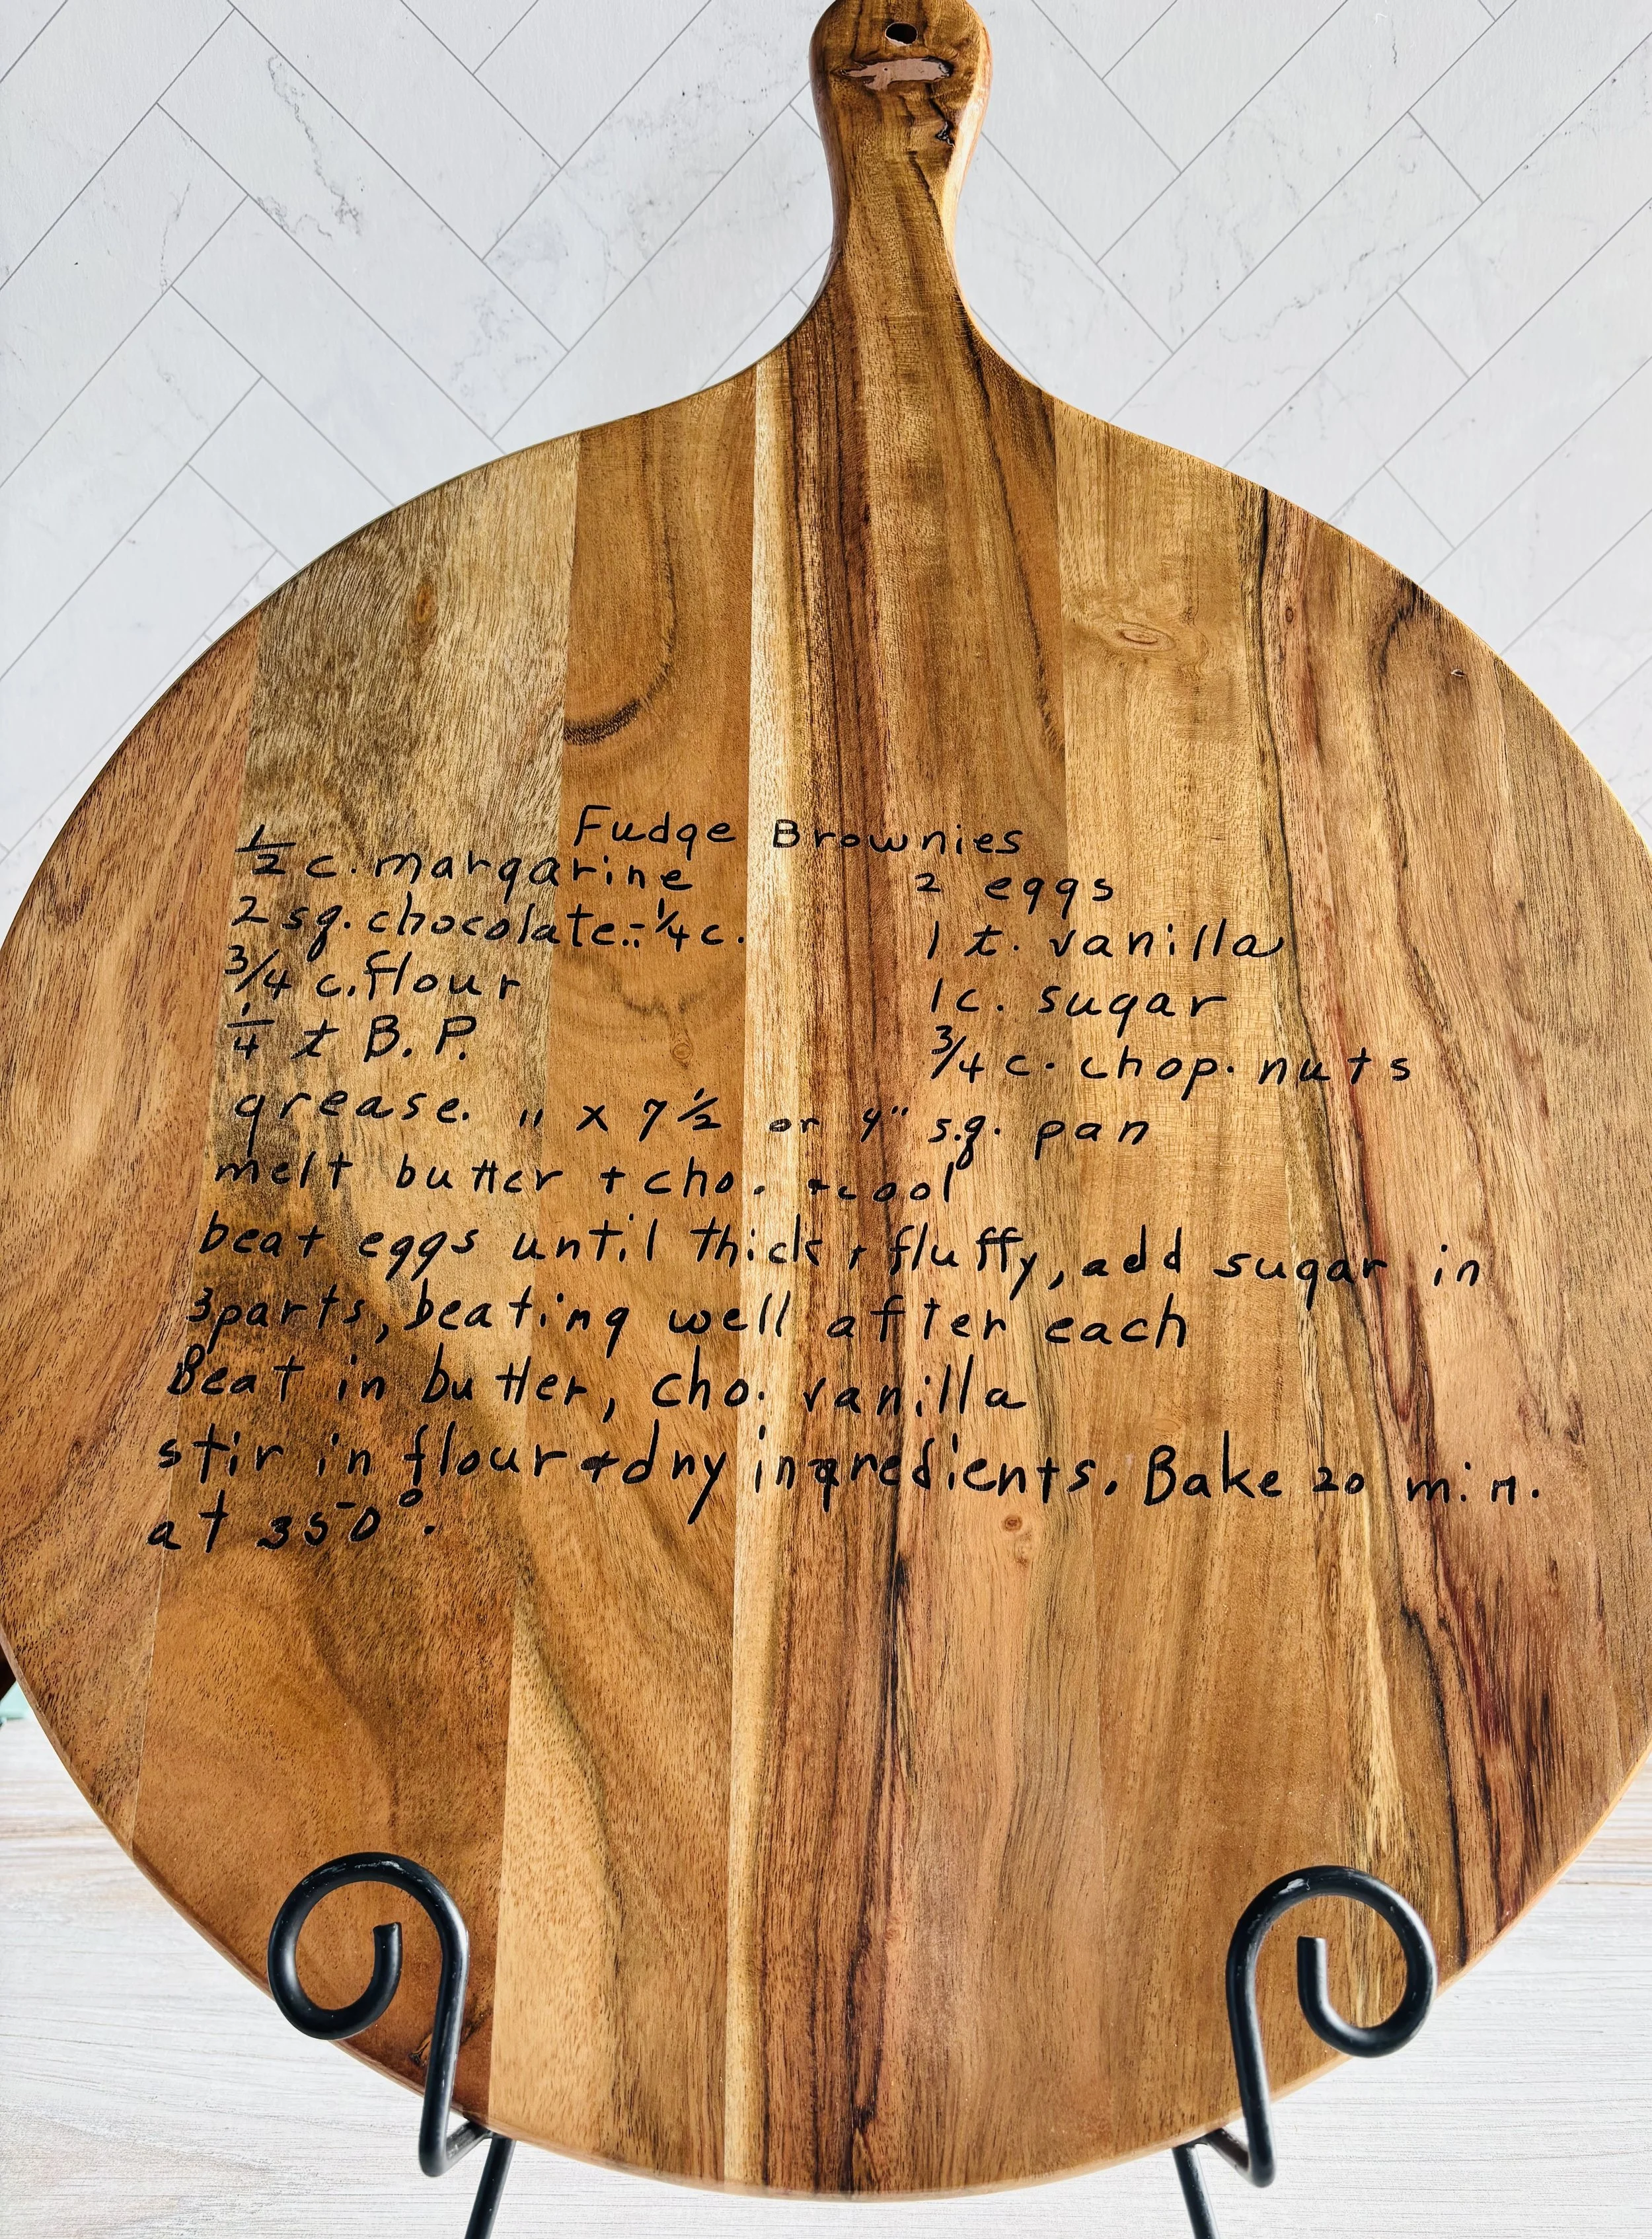 Fudge Brownies
1/2 c. margarine
2 sq. chocolate.=1/4 c.
3/4 c. flour
1/4 t B.P.
2 eggs
1 t. vanilla
1 c. sugar
3/4 c. chop. nuts
grease. 11 x 7 1/2 or 9" sq. pan
melt butter + cho. + cool
beat eggs until thick + fluffy, add sugar in
3 parts, beating well after each
Beat in butter, cho. vanilla
stir in flour + dry ingredients. Bake 20 min.
at 350°.